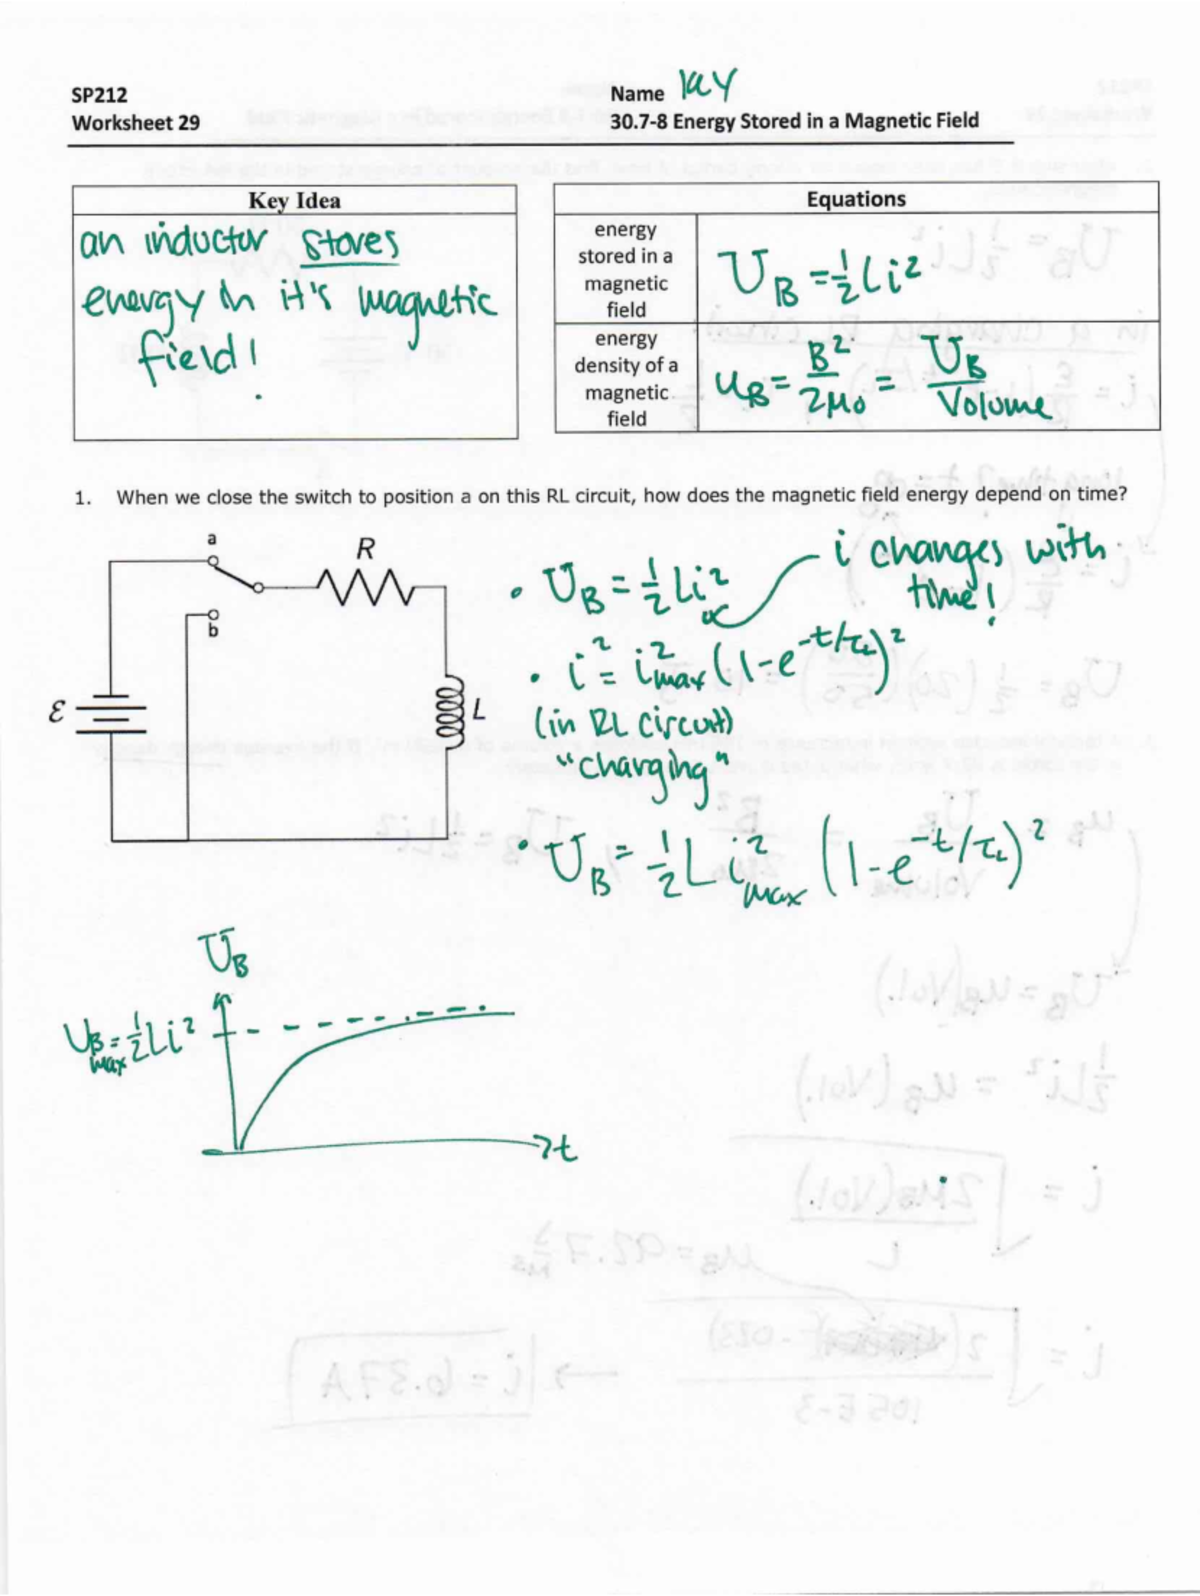 SP212
Name KEY
Worksheet 29
30.7-8 Energy Stored in a Magnetic Field
Key Idea
an inductor stores
energy in it's magnetic
field!
Equations
energy
stored in a
magnetic
field
U_B = ½Li²
energy
density of a
magnetic
field
u_B = B²/2μ₀ = U_B/Volume
1. When we close the switch to position a on this RL circuit, how does the magnetic field energy depend on time?
a
R
b
ε
L
• U_B = ½Li²
i changes with
time!
• i² = i²max (1-e^(-t/τ_L))²
(in RL circuit)
"charging"
• U_B = ½Li²max (1-e^(-t/τ_L))²
U_B
U_B max = ½Li²
t